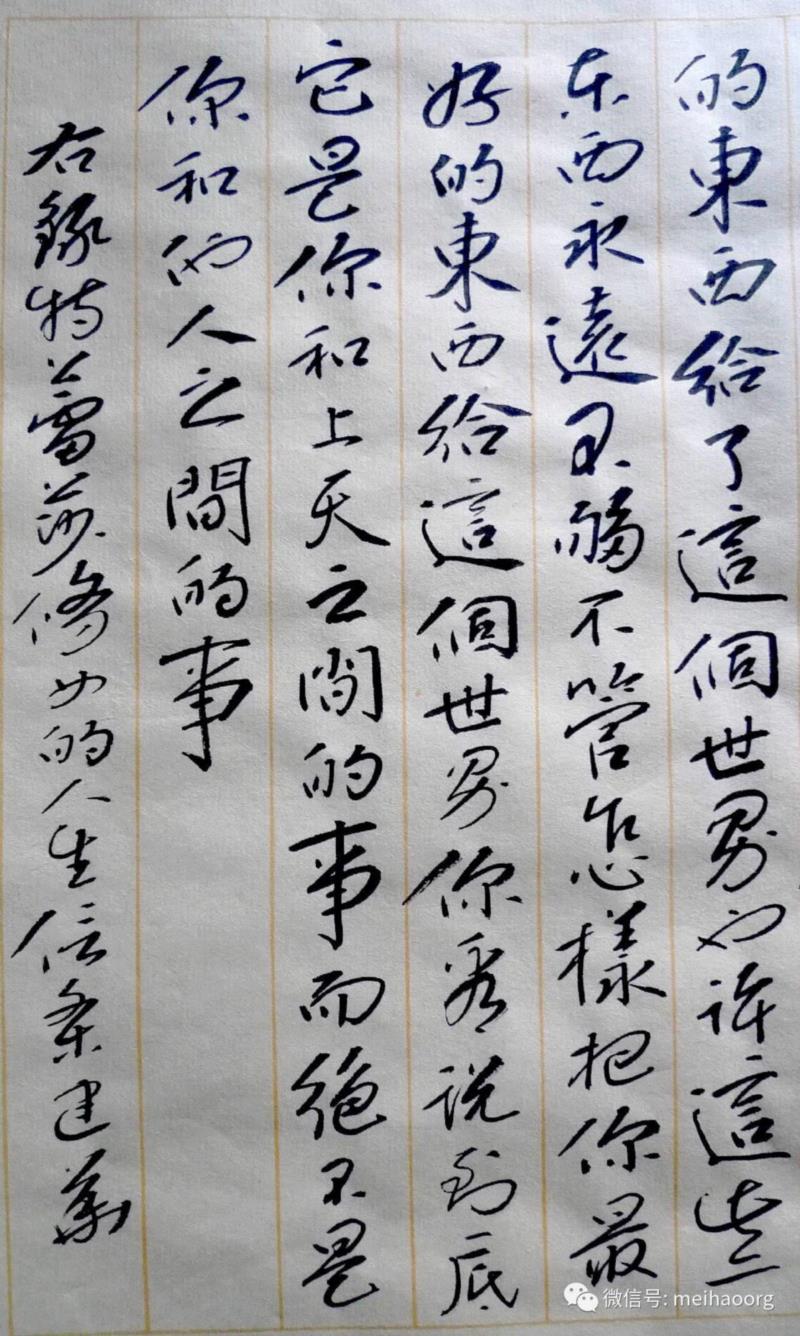 的東西給了這個世界也许這些
东西永遠不够不管怎樣把你最
好的東西給這個世界你看说到底
它是你和上天之間的事而絶不是
你和他人之間的事
右録特蕾莎修女的人生信条建
微信号: meihaoorg